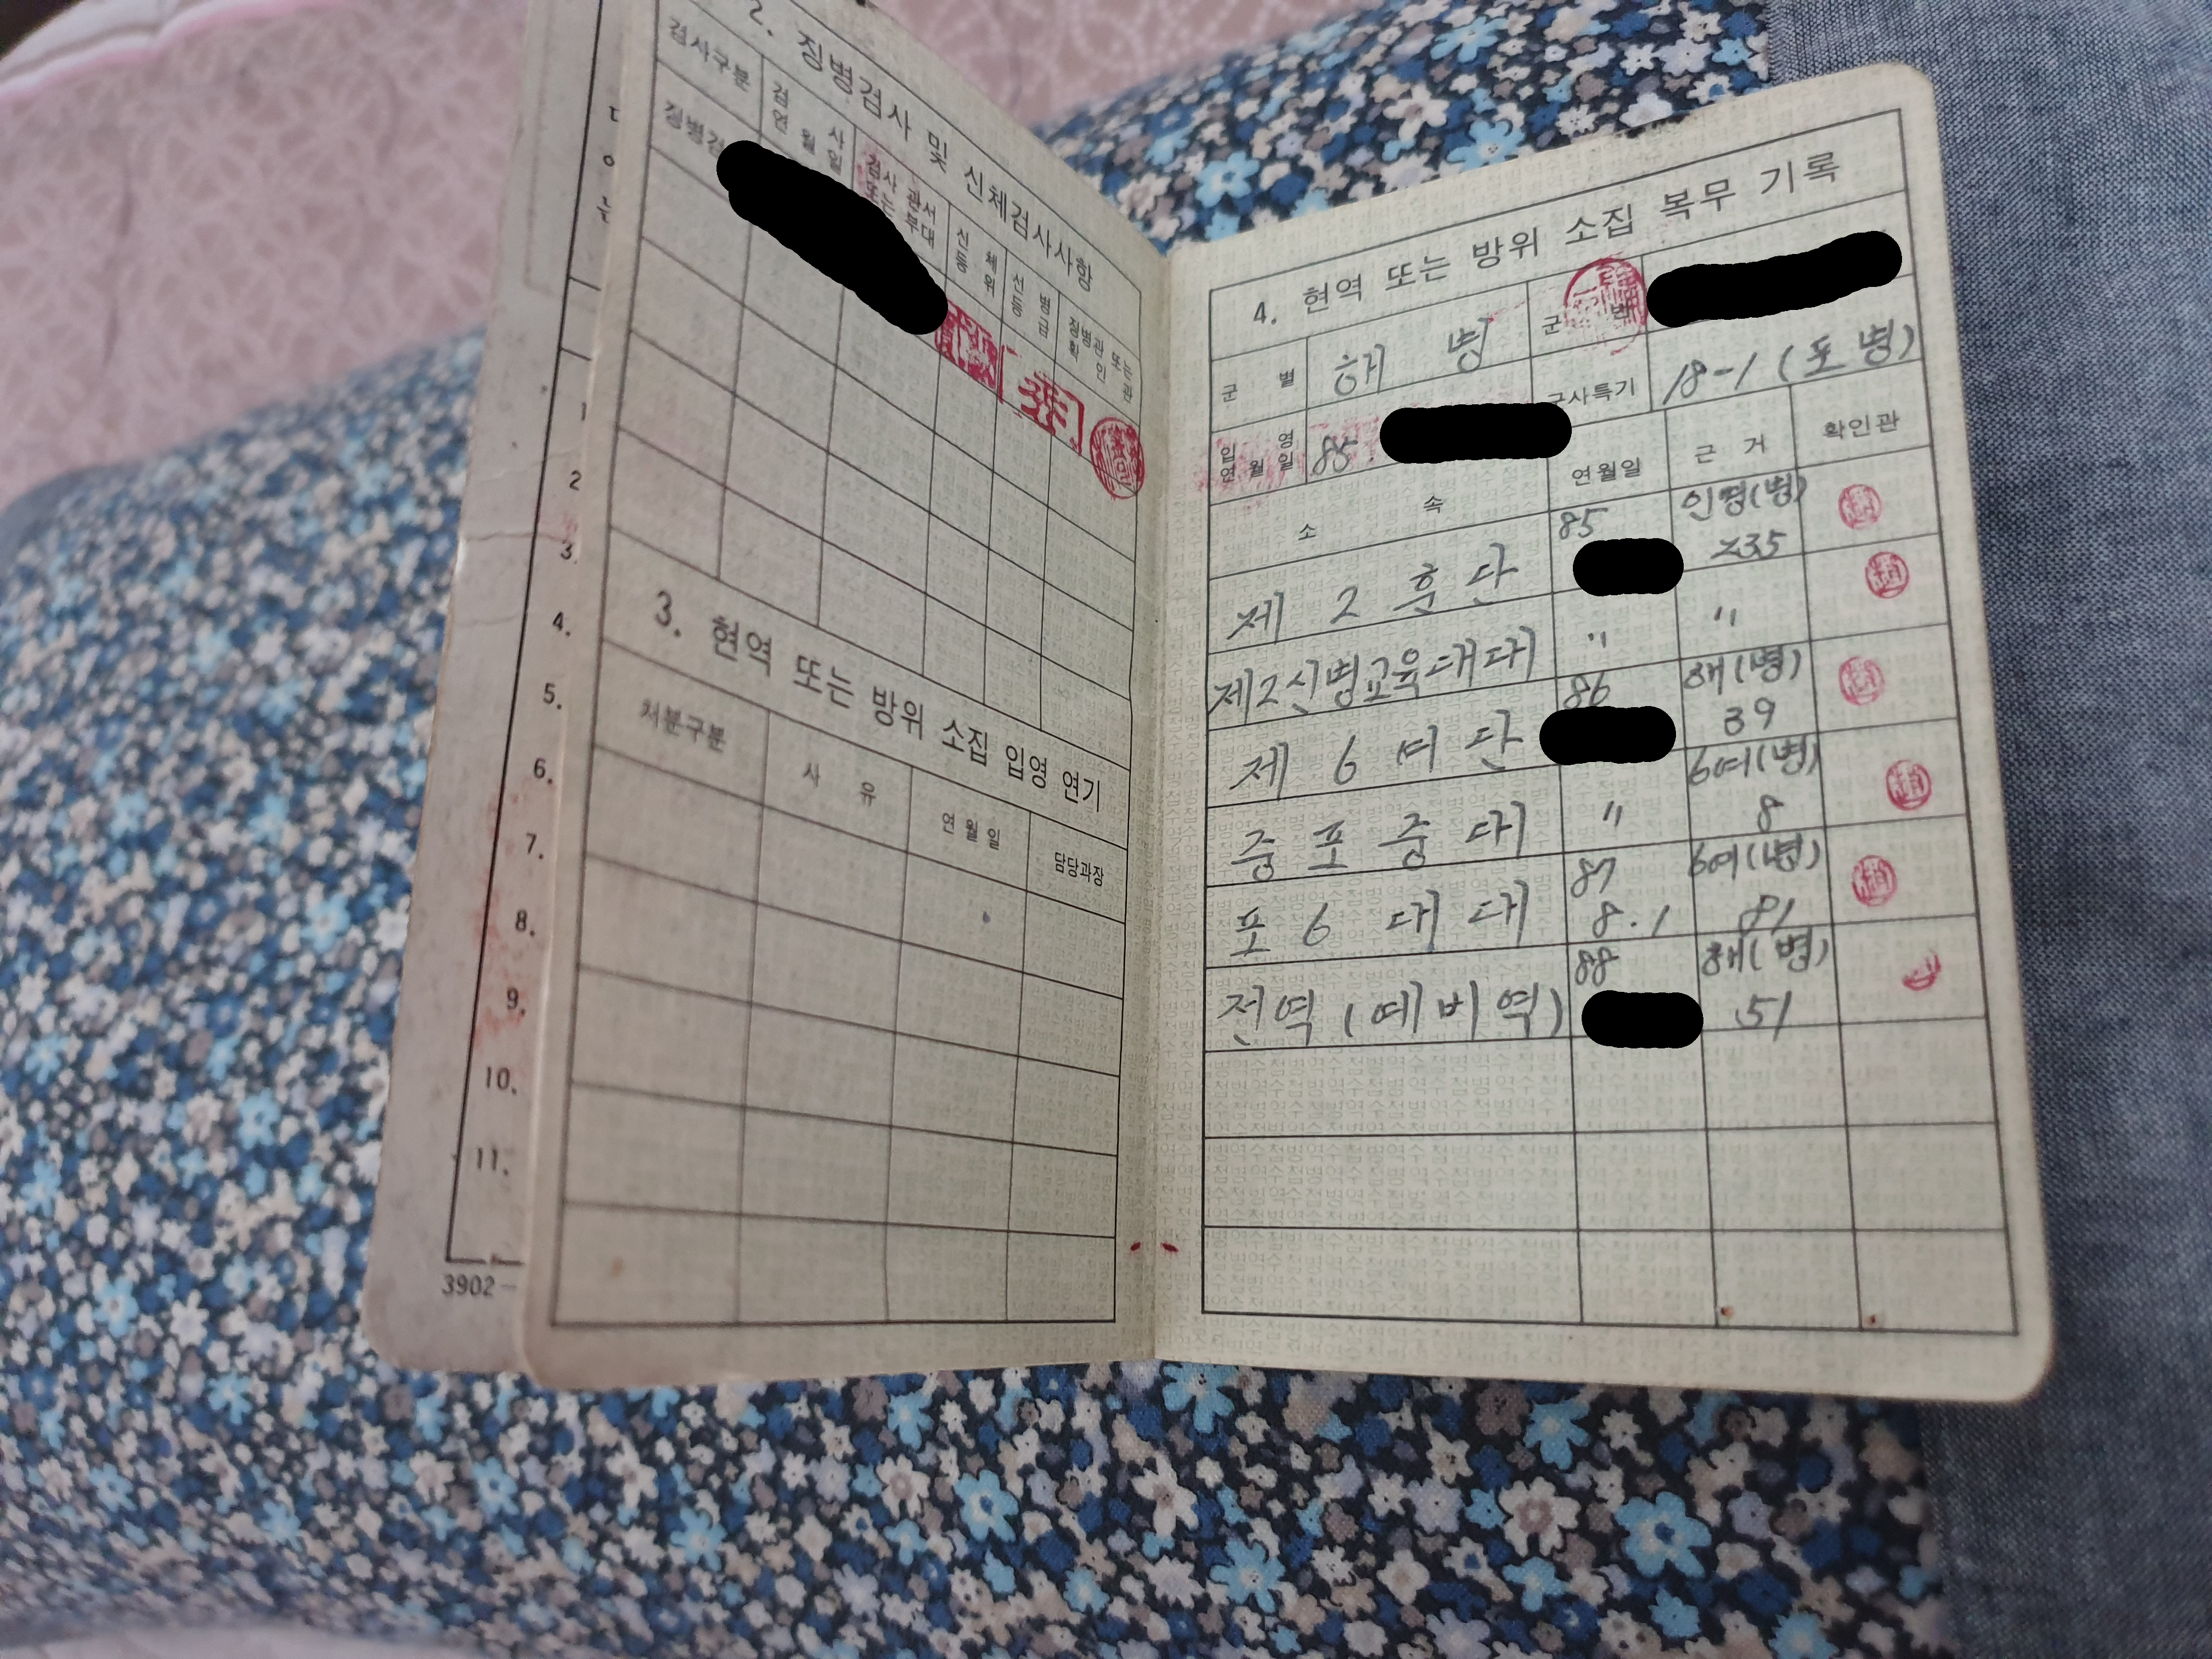 2. 징병검사 및 신체검사사항
검사구분
검 사
연 월 일
검사 관서
또는 부대
신 체
등 위
선 병
등 급
징병관 또는
확 인 관
징병검
3. 현역 또는 방위 소집 입영 연기
처분구분
사 유
연 월 일
담당과장
1
2
3.
4.
5.
6.
7.
8.
9.
10.
11.
3902-
4. 현역 또는 방위 소집 복무 기록
군 별
해 병
군 번
입 영
연 월 일
85.
군사특기
18-1 (포병)
소 속
연월일
근 거
확인관
제 2 훈 단
85
인명(병)
235
제2신병교육대대
"
"
제 6 여 단
86
해(병)
39
중 포 중 대
"
6여(병)
8
포 6 대 대
87
8.1
6여(병)
81
전역 (예비역)
88
해(병)
51